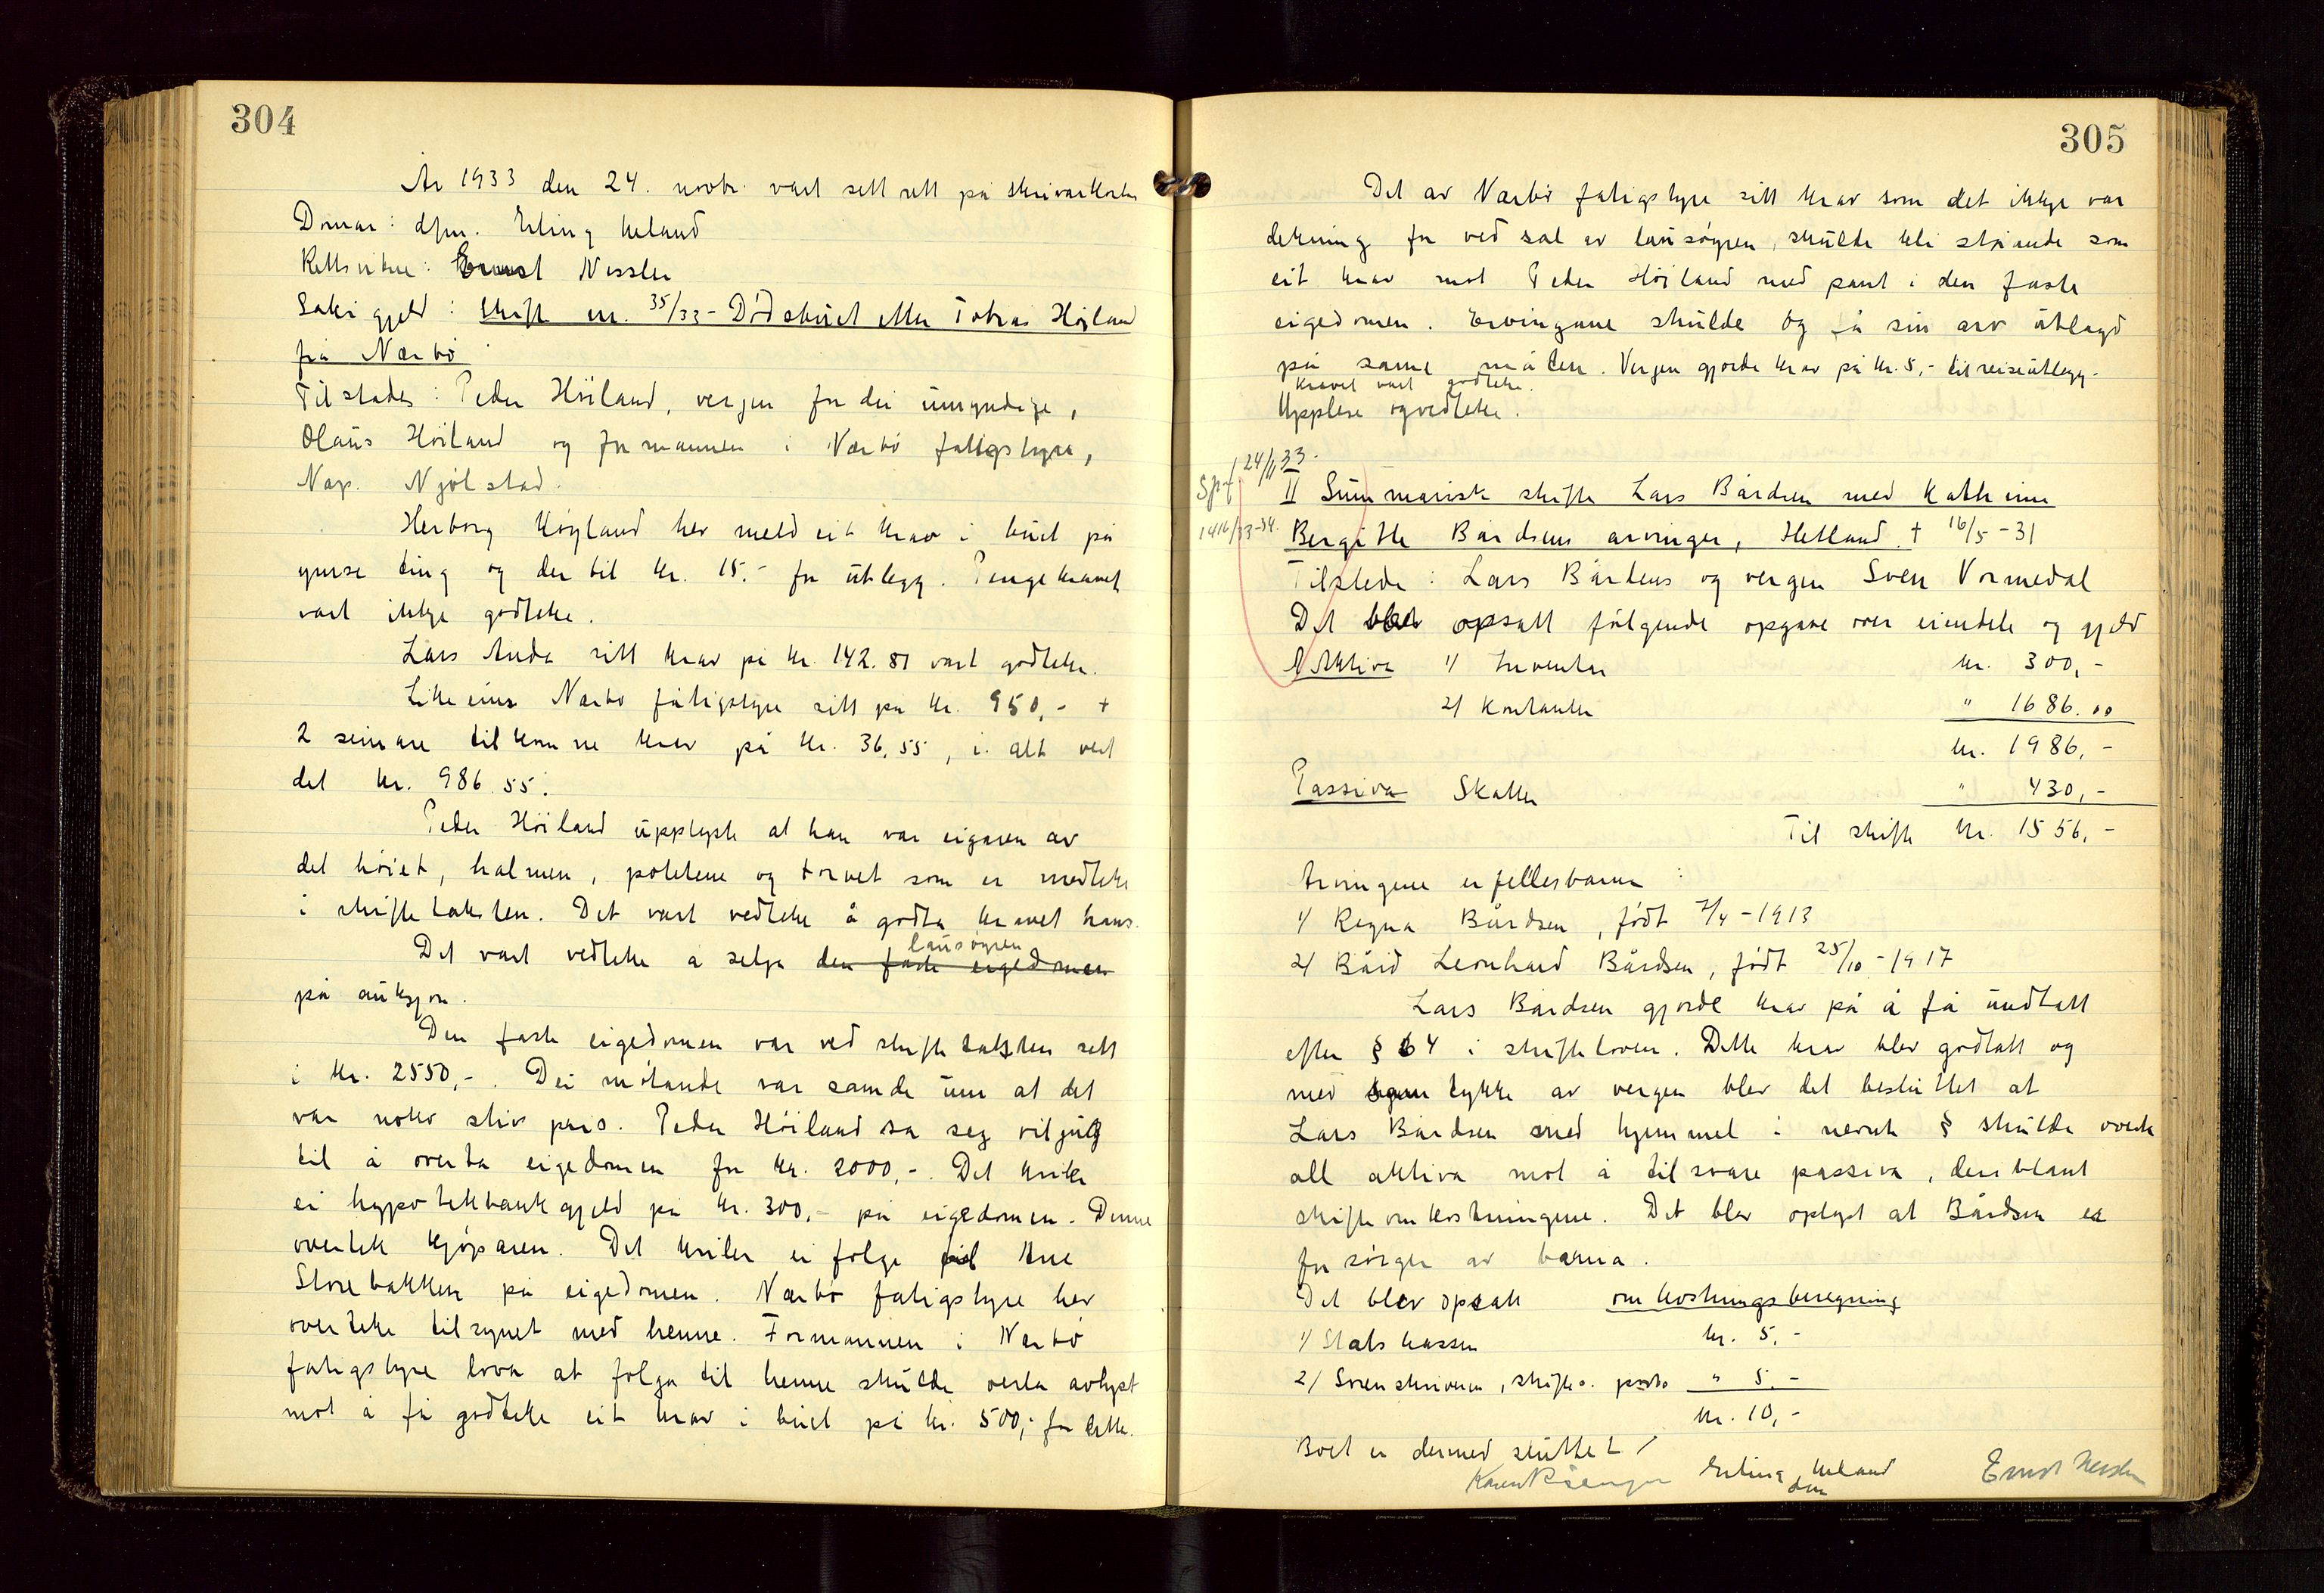 304
År 1933 den 24. novbr. vart sett rett på skrivarkontor
Domar: dfm. Erling Meland
Rettsvitne: Ernst Nessler
Saki gjeld: Skifte nr. 35/33 - Dödsbuet etter Tobias Höiland
frå Nærbö
Tilstades: Peder Höiland, verjen for dei umyndige,
Olaus Höiland og formannen i Nærbö fatigstyre,
Nap. Njölstad.
Herborg Höyland hev meld eit krav i buet på
ymse ting og der til kr. 15.- for utlegg. Pengekravet
vart ikkje godteke.
Lars Anda sitt krav på kr. 142.81 vart godteke.
Like eins Nærbö fatigstyre sitt på kr. 950,- +
2 seinare tilkomne krav på kr. 36,55, i alt vert
det kr. 986.55.
Peder Höiland upplyste at han var eigaren av
det höiet, halmen, potetene og torvet som er medteke
i skiftetaksten. Det vart vedteke å godta kravet hans.
lausöyren
Det vart vedteke a selja den faste eigedomen
på auksjon.
Den faste eigedomen var ved skiftetaksten sett
i kr. 2550,-. Dei mötande var samde um at det
var nokv stiv pris. Peder Höiland sa seg viljug
til å overta eigedomen for kr. 2000,-. Det kviler
ei hypotekbankgjeld på kr. 300,- på eigedomen. Denne
overtek kjöparen. Det kviler ei folge til
Storebakken på eigedomen. Nærbö fatigstyre hev
overteke tilsynet med henne. Formannen i Nærbö
fatigstyre lova at folga til henne skulde verta avlyst
mot å få godteke eit krav i buet på kr. 500,- for dette.
305
Det av Nærbö fatigstyre sitt krav som det ikkje var
dekning for ved sal av lausöyren, skulde bli stöande som
eit krav mot Peder Höiland med pant i den faste
eigedomen. Ervingane skulde og få sin arv utlagd
på same måten. Verjen gjorde krav på kr. 5,- til reiseutlegg.
Kravet vart godteke.
Upplese og vedteke.
24/11 33.
Spf
II Summarisk skifte Lars Bårdsen med Kathrine
1416/33-34.
Bergitte Bårdsens arvinger, Hetland. † 16/5-31
Tilstede: Lars Bårdsens og vergen Sven Vormedal
Det blev opsatt fölgende opgave over eiendele og gjeld
Aktiva 1/ Inventar kr. 300,-
2/ Kontanter " 1686.00
kr. 1986,-
Passiva Skatter " 430,-
Til skifte kr. 1556,-
Arvingene er fellesbarn:
1/ Regna Bårdsen, födt 7/4-1913
2/ Bård Leonhard Bårdsen, födt 25/10-1917
Lars Bårdsen gjorde krav på å få undtatt
efter § 64 i skifteloven. Dette krav blev godtatt og
med samtykke av vergen blev det besluttet at
Lars Bårdsen med hjemmel i nevnte § skulde overta
all aktiva mot å tilsvare passiva, deriblant
skifteomkostningene. Det blev oplyst at Bårdsen er
forsörger av barna.
Det blev opsatt omkostningsberegning
1/ Statskassen kr. 5,-
2/ Sorenskriveren, skifteo. porto " 5.-
kr. 10,-
Boet er dermed sluttet/
Erling Meland
dfm
Ernst Nessler